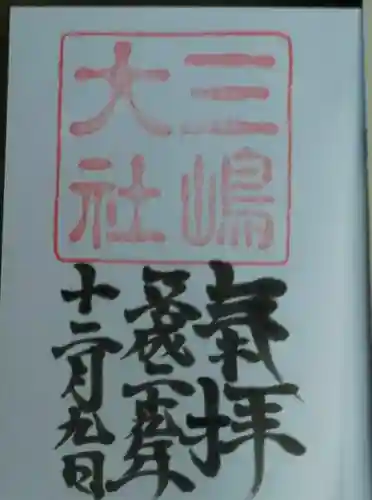 三嶋
大社
奉拝
平成二十五年
十二月九日